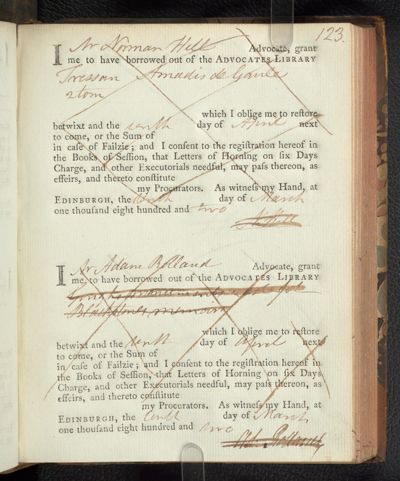 123.
I Mr Norman Hill Advocate, grant
me to have borrowed out of the ADVOCATES LIBRARY
Tressan Amadis de Gaule
2 tom
which I oblige me to reſtore
betwixt and the tenth day of April next
to come, or the Sum of
in caſe of Failzie; and I conſent to the regiſtration hereof in
the Books of Seſſion, that Letters of Horning on ſix Days
Charge, and other Executorials needful, may paſs thereon, as
effeirs, and thereto conſtitute
my Procurators. As witneſs my Hand, at
EDINBURGH, the tenth day of March
one thouſand eight hundred and two
I Mr Adam Rolland Advocate, grant
me to have borrowed out of the ADVOCATES LIBRARY
which I oblige me to reſtore
betwixt and the tenth day of April next
to come, or the Sum of
in caſe of Failzie; and I conſent to the regiſtration hereof in
the Books of Seſſion, that Letters of Horning on ſix Days
Charge, and other Executorials needful, may paſs thereon, as
effeirs, and thereto conſtitute
my Procurators. As witneſs my Hand, at
EDINBURGH, the tenth day of March
one thouſand eight hundred and two
Rolland